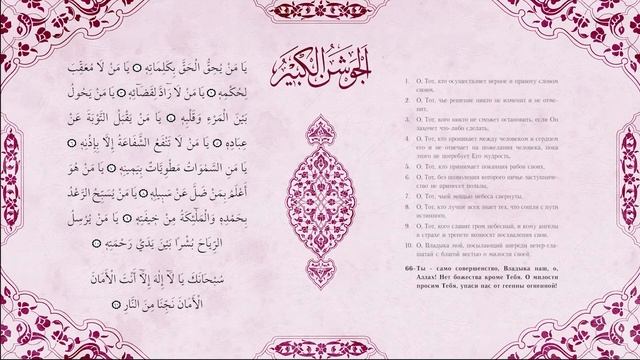 الجوشن الكبير
يَا مَنْ يُحِقُّ الْحَقَّ بِكَلِمَاتِهِ ۞ يَا مَنْ لَا مُعَقِّبَ
لِحُكْمِهِ ۞ يَا مَنْ لَا رَادَّ لِقَضَائِهِ ۞ يَا مَنْ يَحُولُ
بَيْنَ الْمَرْءِ وَقَلْبِهِ ۞ يَا مَنْ يَقْبَلُ التَّوْبَةَ عَنْ
عِبَادِهِ ۞ يَا مَنْ لَا تَنْفَعُ الشَّفَاعَةُ إِلَّا بِإِذْنِهِ ۞
يَا مَنِ السَّمٰوَاتُ مَطْوِيَّاتٌ بِيَمِينِهِ ۞ يَا مَنْ هُوَ
أَعْلَمُ بِمَنْ ضَلَّ عَنْ سَبِيلِهِ ۞ يَا مَنْ يُسَبِّحُ الرَّعْدُ
بِحَمْدِهِ وَالْمَلٰٓئِكَةُ مِنْ خِيفَتِهِ ۞ يَا مَنْ يُرْسِلُ
الرِّيَاحَ بُشْرًا بَيْنَ يَدَيْ رَحْمَتِهِ ۞
سُبْحَانَكَ يَا لَآ إِلٰهَ إِلَّآ أَنْتَ الْأَمَانَ
الْأَمَانَ نَجِّنَا مِنَ النَّارِ ۞
1. О, Тот, кто осуществляет верное и правоту словом
своим,
2. О, Тот, чье решение никто не изменит и не отме-
нит,
3. О, Тот, кого никто не сможет остановить, если Он
захочет что-либо сделать,
4. О, Тот, кто проникает между человеком и сердцем
его и не отвечает на пожелания человека, пока
этого не потребует Его мудрость,
5. О, Тот, кто принимает покаяния рабов своих,
6. О, Тот, без позволения которого ничье заступниче-
ство не принесет пользы,
7. О, Тот, чьей мощью небеса свернуты,
8. О, Тот, кто лучше всех знает тех, что сошли с пути
истинного,
9. О, Тот, кого славит гром небесный, и кому ангелы
в страхе и трепете возносят восхваления свои,
10. О, Владыка мой, посылающий впереди ветер-гла-
шатай с благой вестью о милости своей.
66-Ты - само совершенство, Владыка наш, о,
Аллах! Нет божества кроме Тебя. О милости
просим Тебя, упаси нас от геенны огненной!